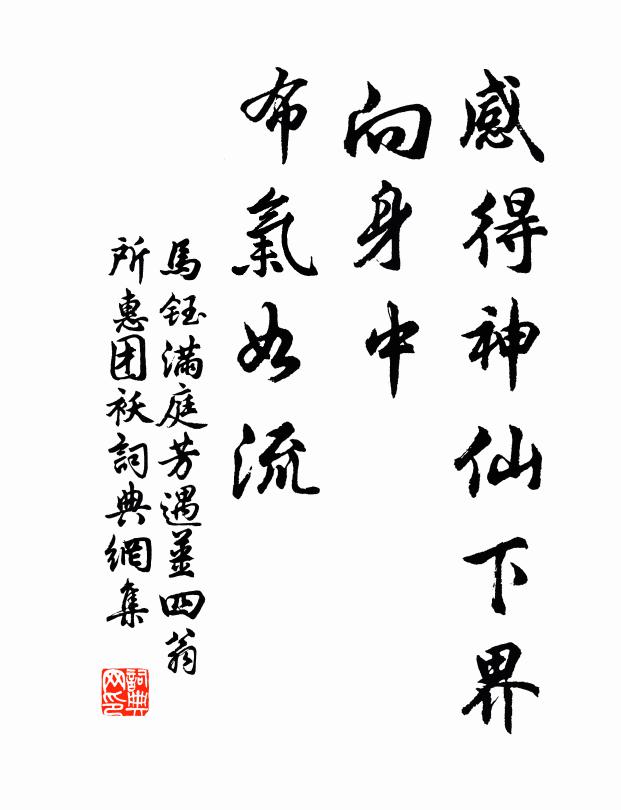 感得神仙下界
向身中
布氣如流
馬鈺满庭芳遇姜四翁
所惠团袄詞典網集
詞典
网印